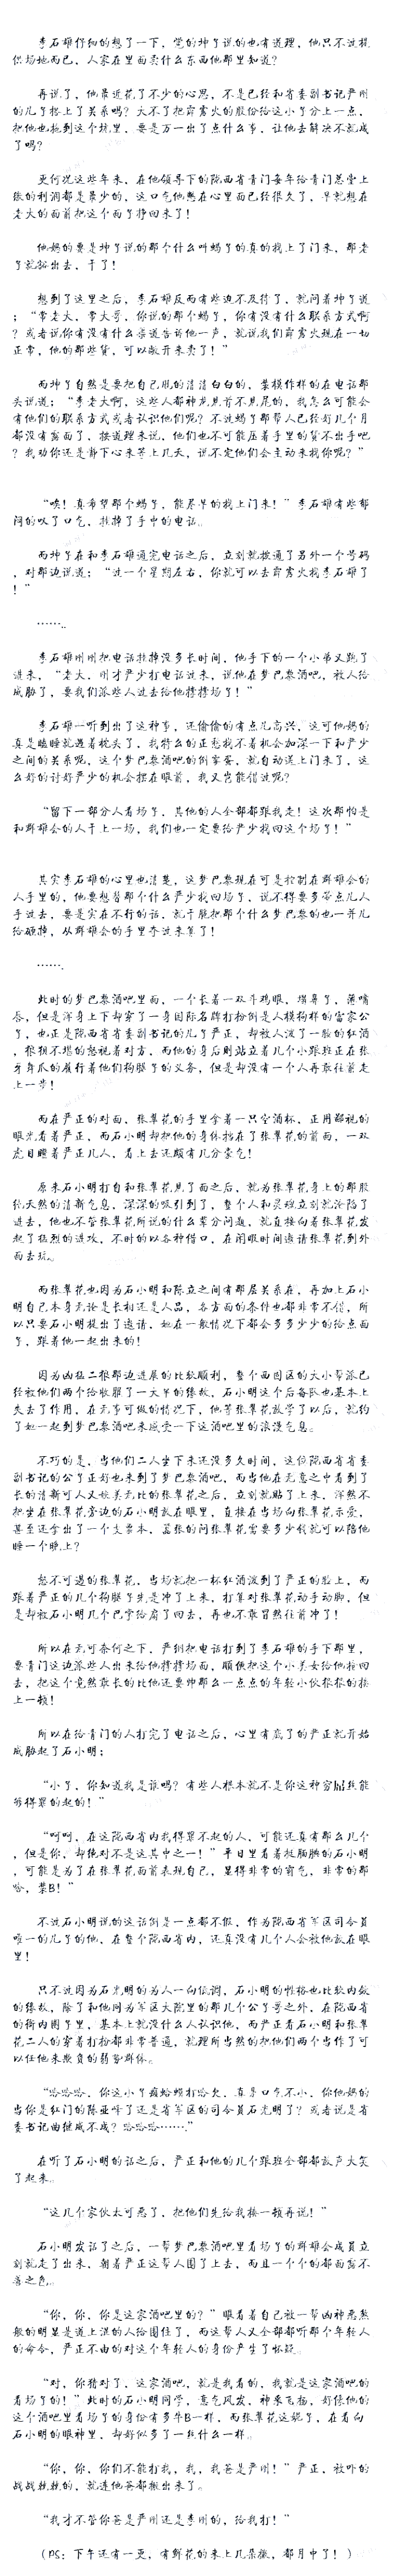 李石雄仔细的想了一下，觉的坤子说的也有道理，他只不过提
供场地而已，人家在里面卖什么东西他那里知道？
再说了，他最近花了不少的心思，不是已经和省委副书记严州
的儿子搭上了关系吗？大不了把霹雳火的股份给这小子分上一点，
把他也拖到这个坑里，要是万一出了点什么事，让他去解决不就成
了吗？
更何况这些年来，在他领导下的陇西省青门每年给青门总堂上
缴的利润都是最少的，这口气他憋在心里面已经很久了，早就想在
老大的面前把这个面子挣回来了！
他妈的要是坤子说的那个什么叫蝎子的真的找上了门来，那老
子就豁出去，干了！
想到了这里之后，李石雄反而有些迫不及待了，就问着坤子道
：“常老大，常大哥，你说的那个蝎子，你有没有什么联系方式啊
？或者说你有没有什么渠道告诉他一声，就说我们霹雳火现在一切
正常，他的那些货，可以敞开来卖了！”
而坤子自然是要把自己脱的清清白白的，装模作样的在电话那
头说道：“李老大啊，这些人都神龙见首不见尾的，我怎么可能会
有他们的联系方式或者认识他们呢？不过蝎子那帮人已经好几个月
都没有露面了，按道理来说，他们也不可能压着手里的货不出手吧
？我劝你还是静下心来等上几天，说不定他们会主动来找你呢？”
“唉！真希望那个蝎子，能尽早的找上门来！”李石雄有些郁
闷的叹了口气，挂掉了手中的电话。
而坤子在和李石雄通完电话之后，立刻就拨通了另外一个号码
，对那边说道：“过一个星期左右，你就可以去霹雳火找李石雄了
！”
……..
李石雄刚刚把电话挂掉没多长时间，他手下的一个小弟又跑了
进来，“老大，刚才严少打电话过来，说他在梦巴黎酒吧，被人给
威胁了，要我们派些人过去给他撑撑场子！”
李石雄一听到出了这种事，还偷偷的有点儿高兴，这可他妈的
真是瞌睡就遇着枕头了，我特么的正愁找不着机会加深一下和严少
之间的关系呢，这个梦巴黎酒吧的倒霉蛋，就自动送上门来了，这
么好的讨好严少的机会摆在眼前，我又岂能错过呢？
“留下一部分人看场子，其他的人全部都跟我走！这次那怕是
和群雄会的人干上一场，我们也一定要给严少找回这个场子！”
其实李石雄的心里也清楚，这梦巴黎现在可是控制在群雄会的
人手里的，他要想替那个什么严少找回场子，说不得要多带点儿人
手过去，要是实在不行的话，就干脆把那个什么梦巴黎的也一并儿
给砸掉，从群雄会的手里夺过来算了！
…….
此时的梦巴黎酒吧里面，一个长着一双斗鸡眼，塌鼻子，薄嘴
唇，但是浑身上下却穿了一身国际名牌打扮倒是人模狗样的富家公
子，也正是陇西省省委副书记的儿子严正，却被人泼了一脸的红酒
，狼狈不堪的怒视着对方，而他的身后则站立着几个小跟班正在张
牙舞爪的履行着他们狗腿子的义务，但是却没有一个人再敢往前走
上一步！
而在严正的对面，张翠花的手里拿着一只空酒杯，正用鄙视的
眼光看着严正，而石小明却把他的身体挡在了张翠花的前面，一双
虎目瞪着严正几人，看上去还颇有几分豪气！
原来石小明打自和张翠花见了面之后，就为张翠花身上的那股
纯天然的清新气息，深深的吸引到了，整个人和灵魂立刻就沦陷了
进去，他也不管张翠花所说的什么辈分问题，就直接向着张翠花发
起了猛烈的进攻，不时的以各种借口，在闲暇时间邀请张翠花到外
面去玩。
而张翠花也因为石小明和陈立之间有那层关系在，再加上石小
明自己本身无论是长相还是人品，各方面的条件也都非常不错，所
以只要石小明提出了邀请，她在一般情况下都会多多少少的给点面
子，跟着他一起出来的！
因为凶狂二根那边进展的比较顺利，整个西固区的大小帮派已
经被他们两个给收服了一大半的缘故，石小明这个后备队也基本上
失去了作用，在无事可做的情况下，他等张翠花放学了以后，就约
了她一起到梦巴黎酒吧来感受一下这酒吧里的浪漫气息。
不巧的是，当他们二人坐下来还没多久时间，这位陇西省省委
副书记的公子正好也来到了梦巴黎酒吧，而当他在无意之中看到了
长的清新可人又娇美无比的张翠花之后，立刻就贴了上来，浑然不
把坐在张翠花旁边的石小明放在眼里，直接在当场向张翠花示爱，
甚至还拿出了一个支票本，嚣张的问张翠花需要多少钱就可以陪他
睡一个晚上？
怒不可遏的张翠花，当场就把一杯红酒泼到了严正的脸上，而
跟着严正的几个狗腿子更是冲了上来，打算对张翠花动手动脚，但
是却被石小明几个巴掌给扇了回去，再也不敢冒然往前冲了！
所以在无可奈何之下，严纲把电话打到了李石雄的手下那里，
要青门这边派些人出来给他撑撑场面，顺便把这个小美女给他抢回
去，把这个竟然敢长的比他还要帅那么一点点的年轻小伙狠狠的揍
上一顿！
所以在给青门的人打完了电话之后，心里有底了的严正就开始
威胁起了石小明：
“小子，你知道我是谁吗？有些人根本就不是你这种穷屌丝能
够得罪的起的！”
“呵呵，在这陇西省内我得罪不起的人，可能还真有那么几个
，但是你，却绝对不是这其中之一！”平日里看着挺腼腆的石小明
，可能是为了在张翠花面前表现自己，显得非常的霸气，非常的那
啥，装B！”
不过石小明说的这话倒是一点都不假，作为陇西省军区司令员
唯一的儿子的他，在整个陇西省内，还真没有几个人会被他放在眼
里！
只不过因为石光明的为人一向低调，石小明的性格也比较内敛
的缘故，除了和他同为军区大院里的那几个公子哥之外，在陇西省
的衙内圈子里，基本上就没什么人认识他，而严正看石小明和张翠
花二人的穿着打扮都非常普通，就理所当然的把他们两个当作了可
以任他来欺负的弱势群体。
“哈哈哈，你这小子癞蛤蟆打哈欠，真是口气不小，你他妈的
当你是红门的陈亚峰了还是省军区的司令员石光明了？或者说是省
委书记曲继成不成？哈哈哈……”
在听了石小明的话之后，严正和他的几个跟班全部都放声大笑
了起来。
“这几个家伙太可恶了，把他们先给我揍一顿再说！”
石小明发话了之后，一帮梦巴黎酒吧里看场子的群雄会成员立
刻就走了出来，朝着严正这帮人围了上去，而且一个个的都面露不
善之色。
“你，你，你是这家酒吧里的？”眼看着自己被一帮凶神恶煞
般的明显是道上混的人给围住了，而这帮人又全部都听那个年轻人
的命令，严正不由的对这个年轻人的身份产生了怀疑。
“对，你猜对了，这家酒吧，就是我看的，我就是这家酒吧的
看场子的！”此时的石小明同学，意气风发，神采飞扬，好像他的
这个酒吧里看场子的身份有多牛B一样，而张翠花这妮子，在看向
石小明的眼神里，却好似多了一些什么一样。
“你，你，你们不能打我，我，我爸是严州！”严正，被吓的
战战兢兢的，就连他爸都搬出来了。
“我才不管你爸是严州还是李州的，给我打！”
（PS：下午还有一更，有鲜花的来上几朵撒，都月中了！）